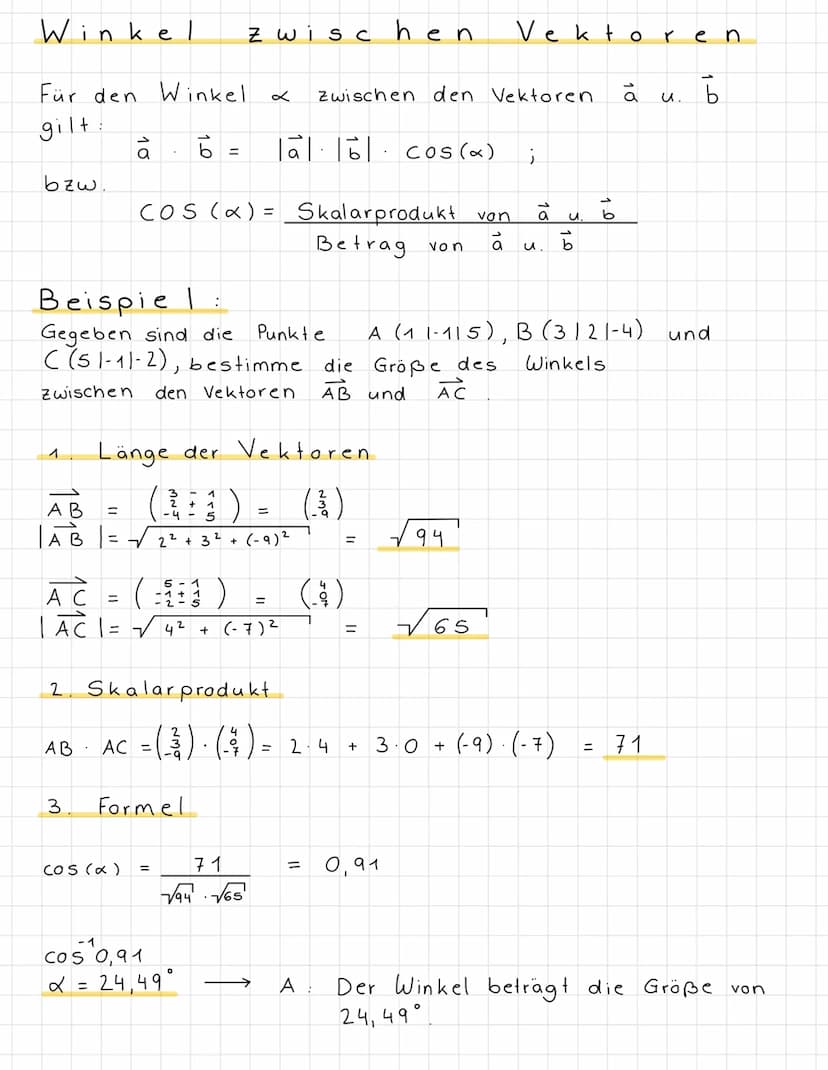 Winkel zwischen Vektoren
Für den Winkel α zwischen den Vektoren a⃗ u. b⃗
gilt:
a⃗ · b⃗ = |a⃗| · |b⃗| · cos(α) ;
bzw.
cos(α) = Skalarprodukt von a⃗ u. b⃗
Betrag von a⃗ u. b⃗
Beispiel:
Gegeben sind die Punkte A (1|-1|5), B (3|2|-4) und
C (5|-1|-2), bestimme die Größe des Winkels
zwischen den Vektoren AB⃗ und AC⃗.
1. Länge der Vektoren
AB⃗ = (3 - 1 / 2 + 1 / -4 - 5) = (2 / 3 / -9)
|AB⃗| = √2² + 3² + (-9)² = √94
AC⃗ = (5 - 1 / -1 + 1 / -2 - 5) = (4 / 0 / -7)
|AC⃗| = √4² + (-7)² = √65
2. Skalarprodukt
AB · AC = (2 / 3 / -9) · (4 / 0 / -7) = 2·4 + 3·0 + (-9)·(-7) = 71
3. Formel
cos(α) = 71 / √94 · √65 = 0,91
cos⁻¹0,91
α = 24,49° → A: Der Winkel beträgt die Größe von
24,49°.